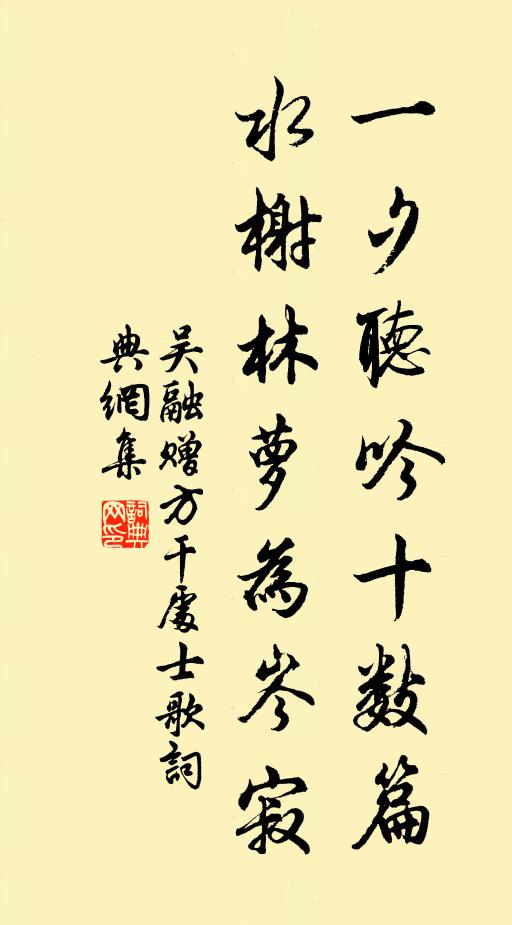 一夕聽吟十數篇
水榭林萝為岑寂
吴融赠方干處士歌詞
典網集
詞典网印